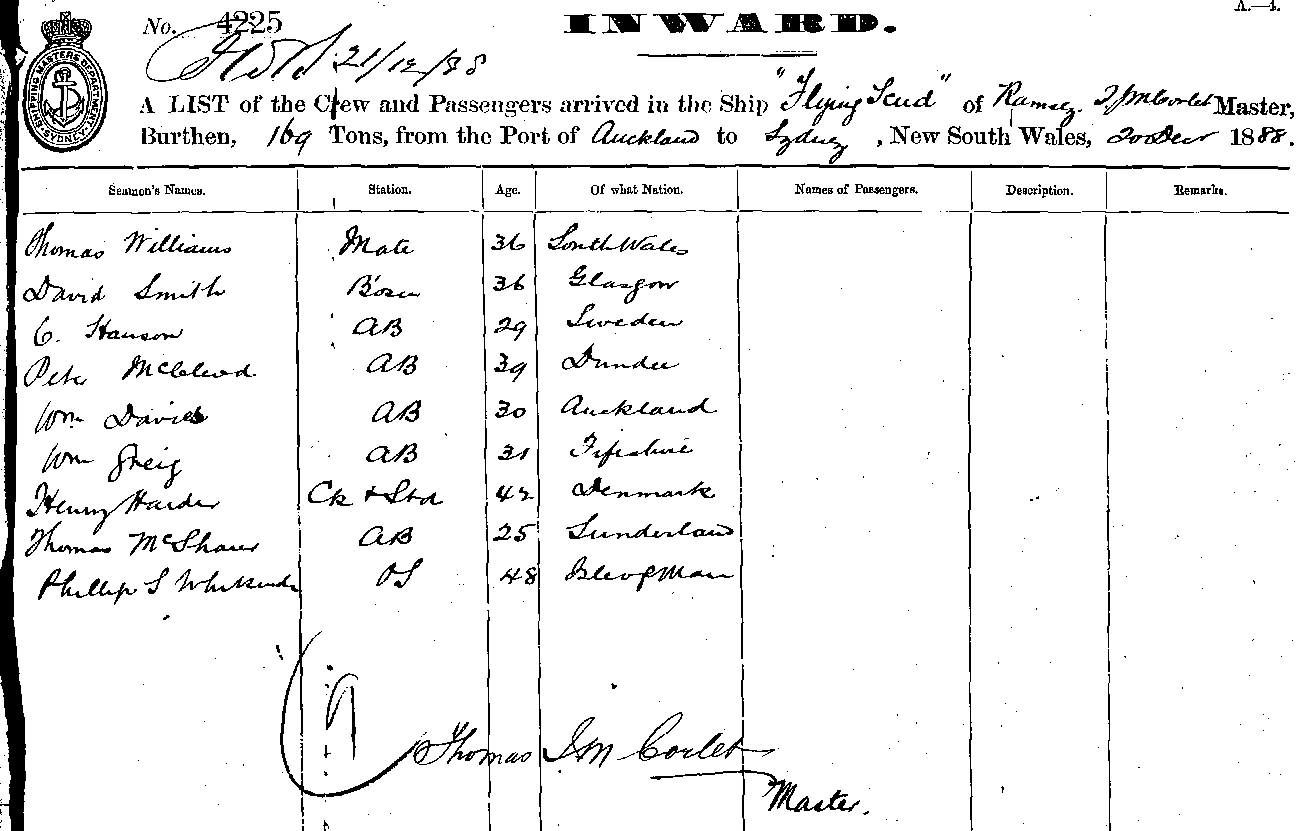 A.—4.
No. 4225
INWARD.
21/12/88
SHIPPING MASTERS DEPARTMENT SYDNEY
A LIST of the Crew and Passengers arrived in the Ship "Flying Scud" of Ramsey. T J M Corlet Master,
Burthen, 169 Tons, from the Port of Auckland to Sydney, New South Wales, 20 Decr 1888.
Seamen's Names. Station. Age. Of what Nation. Names of Passengers. Description. Remarks.
Thomas Williams Mate 36 South Wales
David Smith Bosn 36 Glasgow
C. Hanson AB 29 Sweden
Peter McCleod AB 39 Dundee
Wm Davies AB 30 Auckland
Wm Greig AB 31 Fifeshire
Henry Harder Ck & Std 42 Denmark
Thomas McShane AB 25 Sunderland
Phillip S OS 48 Isle of Man
9
Thomas J M Corlet
Master.